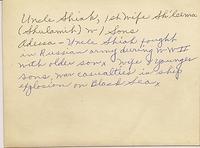 Uncle Shiah, 1st wife Shilecma
(Shulamith) w/ sons
Adessa - Uncle Shiah fought
in Russian army during WWII
with older son. Wife & younger
sons, war casualties in ship
explosion on Black Sea.